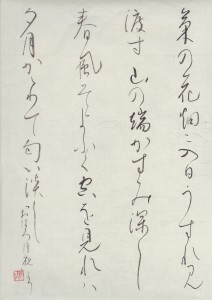 菜の花畑に入日うすれ見
渡す山の端かすみ深し
春風そよふく空を見れハ
夕月かゝりて匂ひ淡し